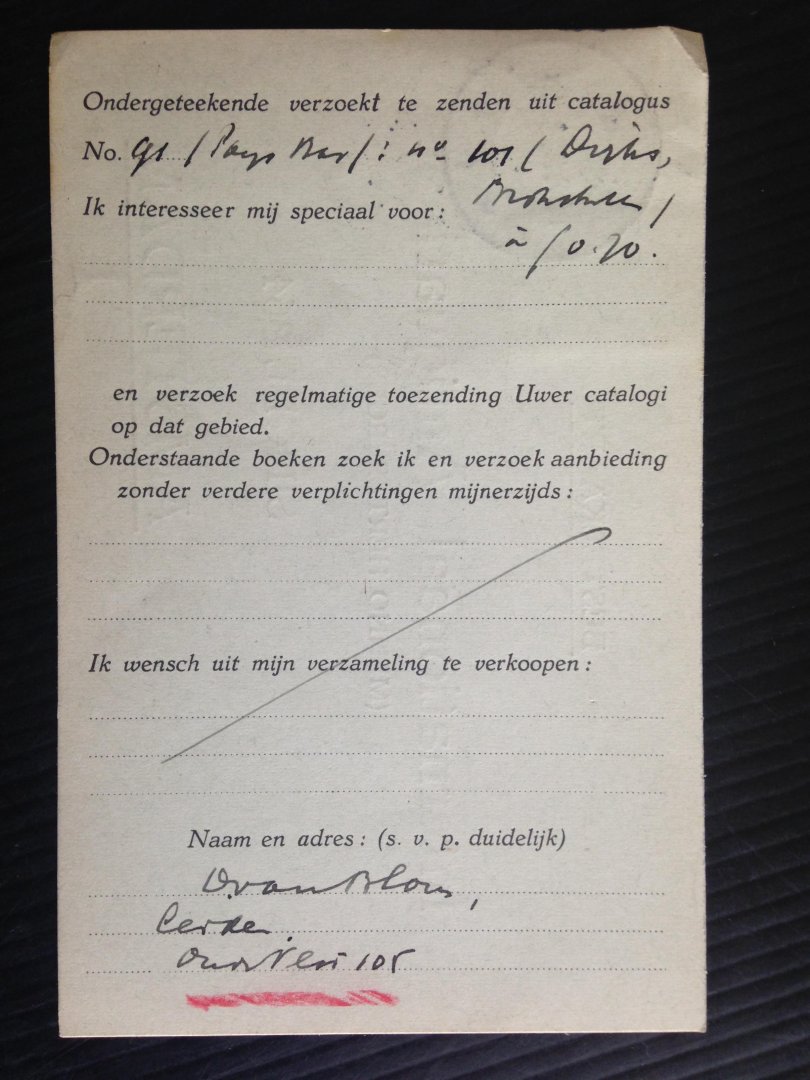 Ondergeteekende verzoekt te zenden uit catalogus
No. 91 / Pays Bas / : no 101 ( Dirks,
Ik interesseer mij speciaal voor :
à f 0.70.
en verzoek regelmatige toezending Uwer catalogi
op dat gebied.
Onderstaande boeken zoek ik en verzoek aanbieding
zonder verdere verplichtingen mijnerzijds :
Ik wensch uit mijn verzameling te verkoopen :
Naam en adres : (s. v. p. duidelijk)
D van Blom,
Leiden
Oude Vest 105